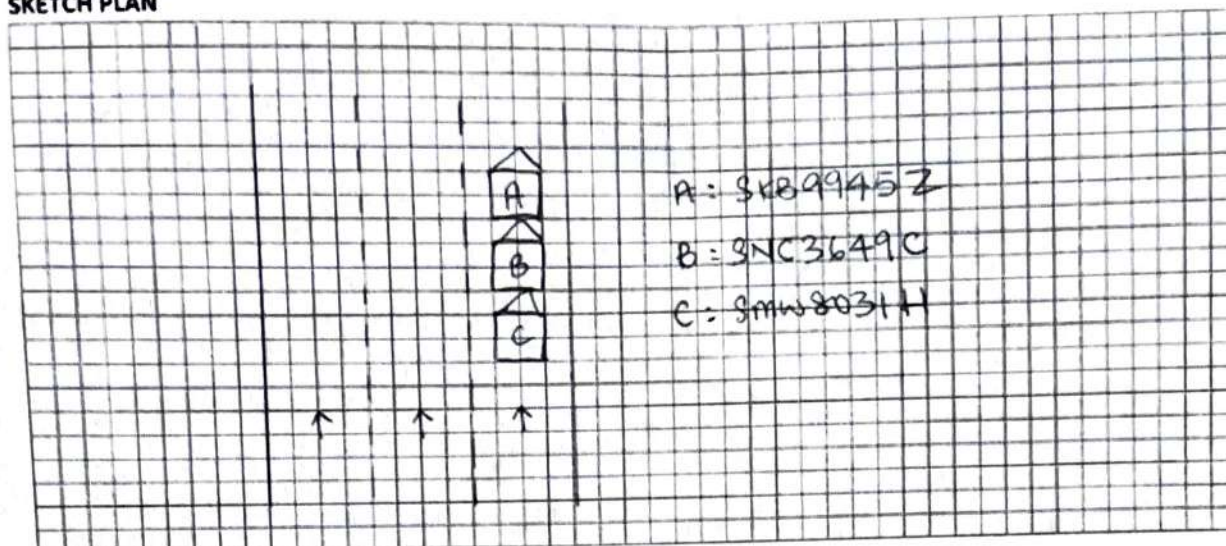 SKETCH PLAN
A
A: SKB9945Z
B
B: SNC3649C
C
C: SMW8031H